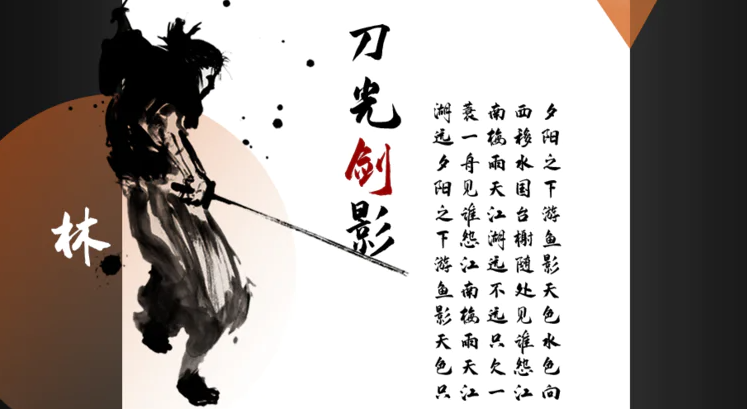 夕阳之下游鱼影天色水色向
西移水国台榭随处见谁怨江
南梅雨天江湖远不远只欠一
蓑一舟见谁怨江南梅雨天江
湖远夕阳之下游鱼影天色只
刀光剑影
林